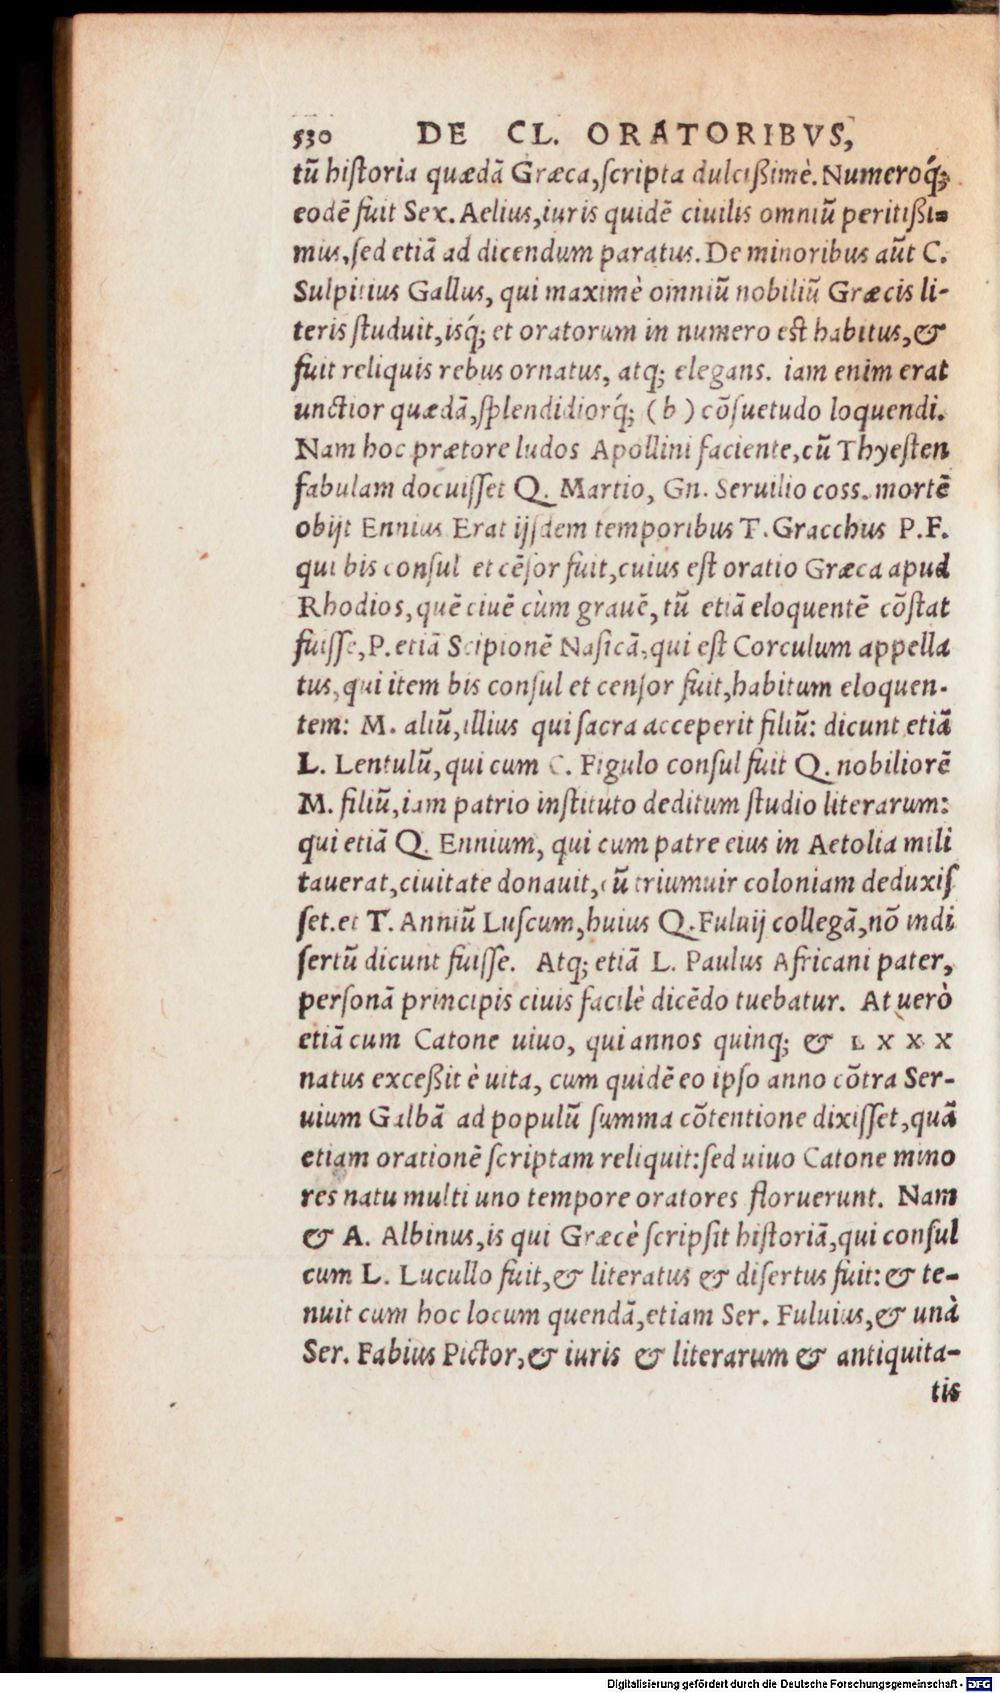 530 DE CL. ORATORIBVS,
tū hiſtoria quædā Græca, ſcripta dulcißimè. Numeroq́;
eodē fuit Sex. Aelius, iuris quidē ciuilis omniū peritißi=
mus, ſed etiā ad dicendum paratus. De minoribus aūt C.
Sulpitius Gallus, qui maximè omniū nobiliū Græcis li-
teris ſtuduit, isq́; et oratorum in numero eſt habitus, &
fuit reliquis rebus ornatus, atq; elegans. iam enim erat
unctior quædā, ſplendidiorq́; (b) cōſuetudo loquendi.
Nam hoc prætore ludos Apollini faciente, cū Thyeſten
fabulam docuiſſet Q. Martio, Gn. Seruilio coss. mortē
obijt Ennius Erat ijſdem temporibus T. Gracchus P. F.
qui bis conſul et cēſor fuit, cuius eſt oratio Græca apud
Rhodios, quē ciuē cùm grauē, tū etiā eloquentē cōſtat
fuiſſe, P. etiā Scipionē Naſicā, qui eſt Corculum appella
tus, qui item bis conſul et cenſor fuit, habitum eloquen-
tem: M. aliū, illius qui ſacra acceperit filiū: dicunt etiā
L. Lentulū, qui cum C. Figulo conſul fuit Q. nobiliorē
M. filiū, iam patrio inſtituto deditum ſtudio literarum:
qui etiā Q. Ennium, qui cum patre eius in Aetolia mili
tauerat, ciuitate donauit, cū triumuir coloniam deduxiſ
ſet. et T. Anniū Luſcum, huius Q. Fuluij collegā, nō indi
ſertū dicunt fuiſſe. Atq; etiā L. Paulus Africani pater,
perſonā principis ciuis facilè dicēdo tuebatur. At uerò
etiā cum Catone uiuo, qui annos quinq; & L X X X
natus exceßit è uita, cum quidē eo ipſo anno cōtra Ser-
uium Galbā ad populū ſumma cōtentione dixiſſet, quā
etiam orationē ſcriptam reliquit: ſed uiuo Catone mino
res natu multi uno tempore oratores floruerunt. Nam
& A. Albinus, is qui Græcè ſcripſit hiſtoriā, qui conſul
cum L. Lucullo fuit, & literatus & diſertus fuit: & te-
nuit cum hoc locum quendā, etiam Ser. Fuluius, & unà
Ser. Fabius Pictor, & iuris & literarum & antiquita-
tis
Digitalisierung gefördert durch die Deutsche Forschungsgemeinschaft - DFG